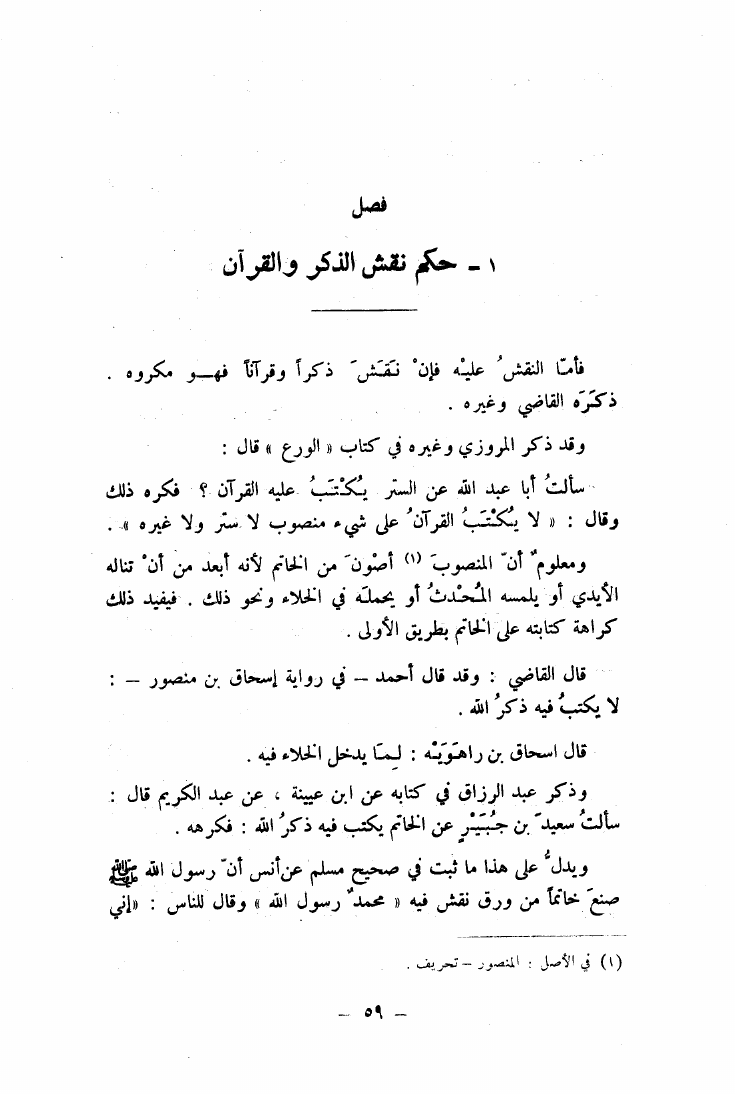 فصل
١ - حكم نقش الذكر والقرآن
فأمّا النقشُ عليْه فإنْ نَقَشَ ذكراً وقرآناً فهـو مكروه .
ذكَرَه القاضي وغيره .
وقد ذكر المروزي وغيره في كتاب « الورع » قال :
سألتُ أبا عبد الله عن الستر يُكْتَبُ عليه القرآن ؟ فكره ذلك
وقال : « لا يُكْتَبُ القرآنُ على شيء منصوب لا ستر ولا غيره » .
ومعلومٌ أنّ المنصوبَ (١) أصْونَ من الخاتم لأنه أبعد من أنْ تناله
الأيدي أو يلمسه المُحْدثُ أو يحمله في الخلاء ونحو ذلك . فيفيد ذلك
كراهة كتابته على الخاتم بطريق الأولى .
قال القاضي : وقد قال أحمد – في رواية إسحاق بن منصور – :
لا يكتبُ فيه ذكرُ الله .
قال اسحاق بن راهَوَيْه : لِمَا يدخل الخلاء فيه .
وذكر عبد الرزاق في كتابه عن ابن عيينة ، عن عبد الكريم قال :
سألتُ سعيدَ بن جُبَيْرٍ عن الخاتم يكتب فيه ذكرُ الله : فكرهه .
ويدلُّ على هذا ما ثبت في صحيح مسلم عن أنس أنّ رسول الله ﷺ
صنعَ خاتماً من ورق نقش فيه « محمدٌ رسول الله » وقال للناس : «إني
(١) في الأصل : المنصور – تحريف .
– ٥٩ –